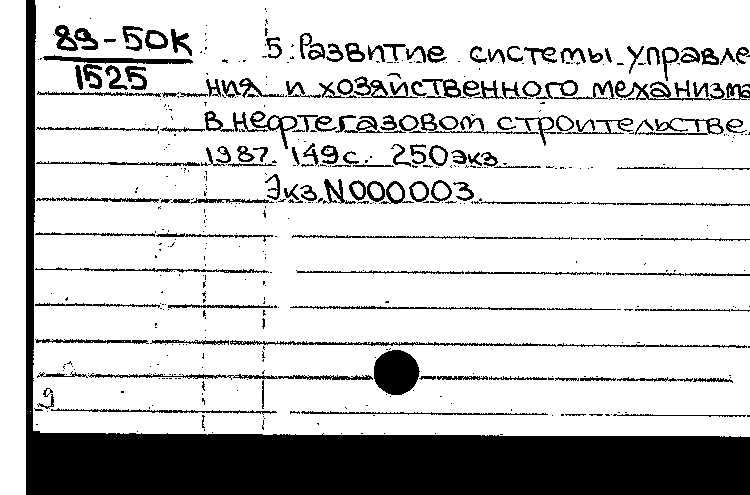 89-50К
1525
5. Развитие системы управле
ния и хозяйственного механизма
в нефтегазовом строительстве
1987. 149с. 250экз.
Экз.N000003.
9